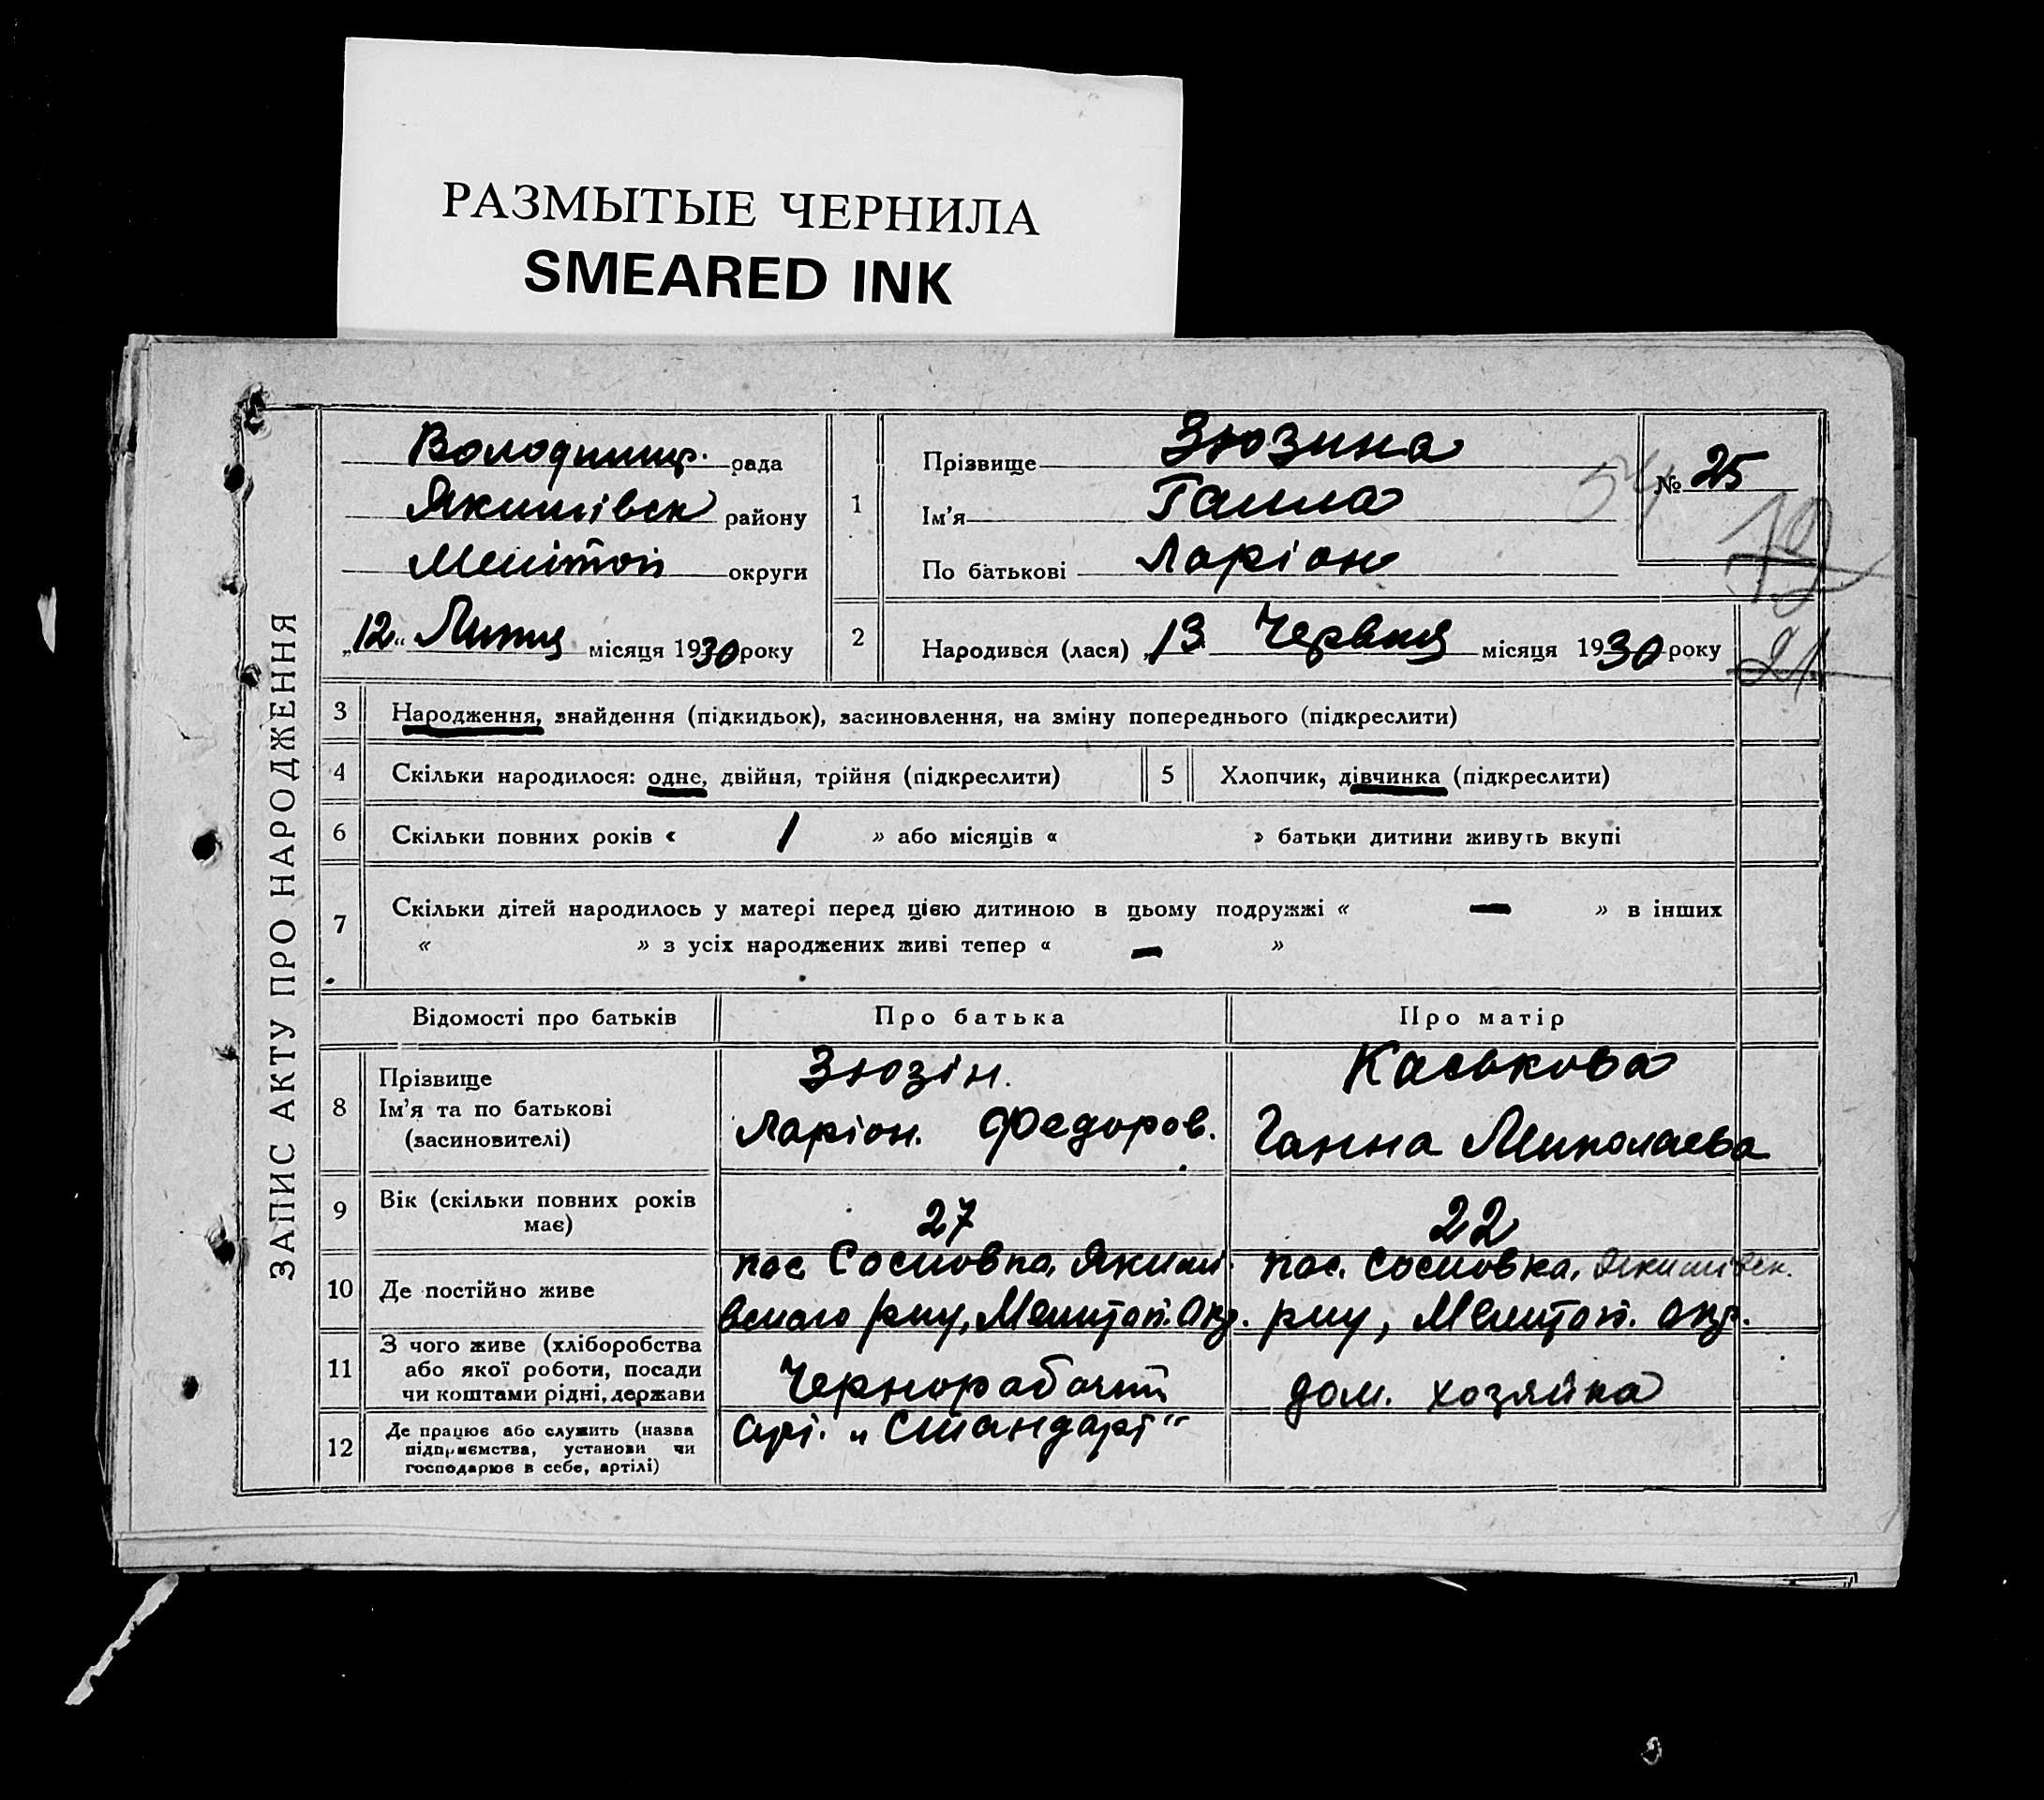 РАЗМЫТЫЕ ЧЕРНИЛА
SMEARED INK
ЗАПИС АКТУ ПРО НАРОДЖЕННЯ
рада
Якимівськ району
Меліто́п округи
„12“ Липня місяця 1930 року
1
Прізвище Зюзина
Ім'я Ганна
По батькові Ларіон
№ 25
54
12
21
2
Народився (лася) „13 Червня місяця 1930 року
3 Народження, знайдення (підкидьок), засиновлення, на зміну попереднього (підкреслити)
4 Скільки народилося: одне, двійня, трійня (підкреслити)
5 Хлопчик, дівчинка (підкреслити)
6 Скільки повних років « 1 » або місяців « » батьки дитини живуть вкупі
7 Скільки дітей народилось у матері перед цією дитиною в цьому подружжі « — » в інших
« » з усіх народжених живі тепер « — »
Відомості про батьків Про батька Про матір
8
Прізвище
Ім'я та по батькові
(засиновителі)
Зюзін.
Ларіон. Федоров.
Каськова
Ганна Миколаева
9
Вік (скільки повних років
має)
27
22
10 Де постійно живе
пос. Сосновка, Якимі-
вського р-ну, Мелітоп. окр.
пос. Сосновка, Якимівск.
р-ну, Мелітоп. окр.
11
З чого живе (хліборобства
або якої роботи, посади
чи коштами рідні, держави
Чернорабочий
дом. хозяйка
12
Де працює або служить (назва
підприємства, установи чи
господарює в себе, артілі)
арт. „Стандарт"